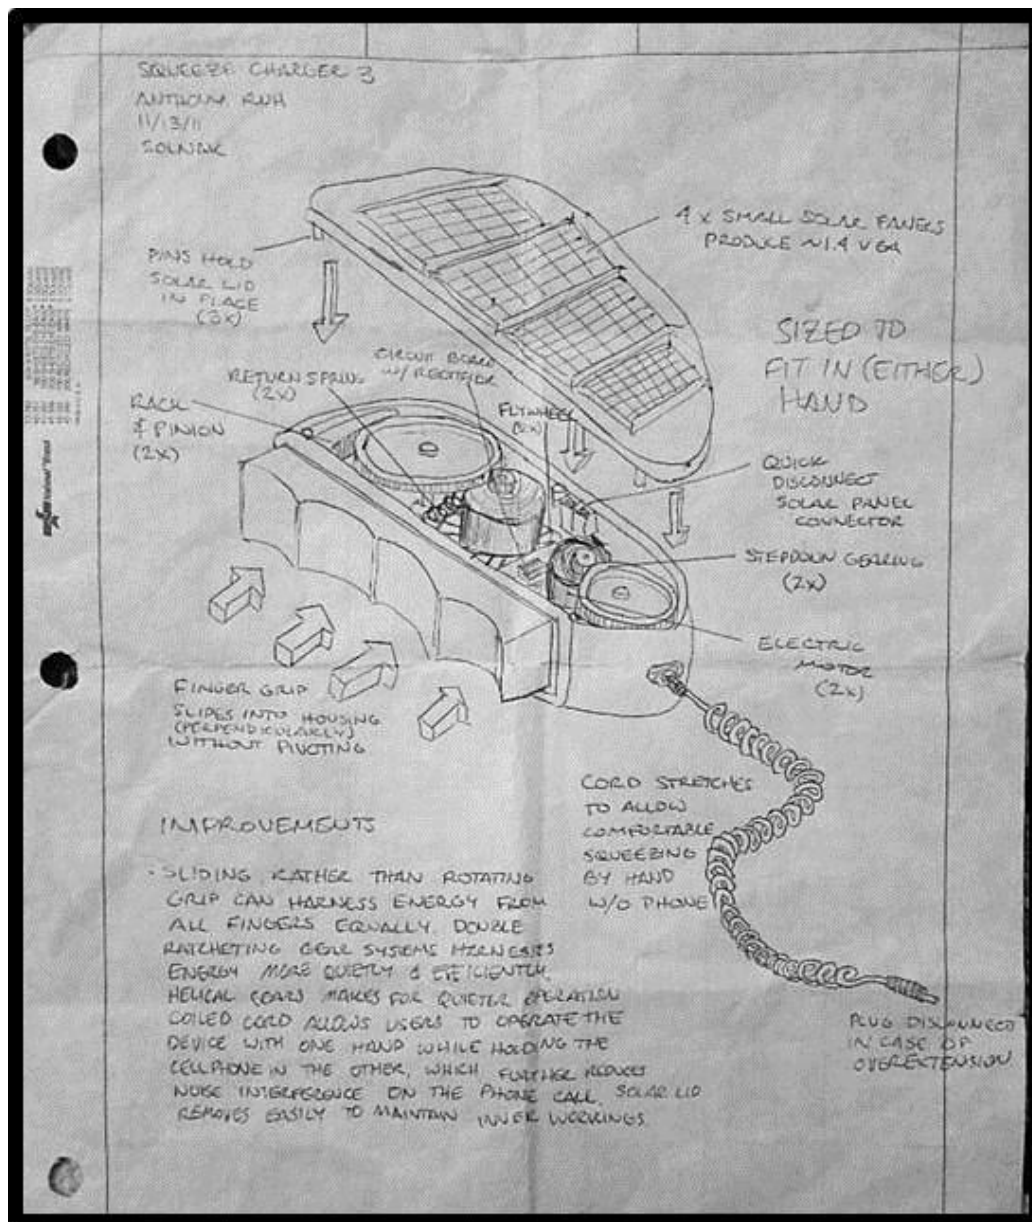 SQUEEZE CHARGER 3
ANTHONY
11/13/11
4 X SMALL SOLAR PANELS
PRODUCE ~1.4 V EA
PINS HOLD
SOLAR LID
IN PLACE
(3X)
SIZED TO
FIT IN (EITHER)
HAND
CIRCUIT BOARD
W/ RECTIFIER
RETURN SPRING
(2X)
FLYWHEEL
(2X)
RACK
& PINION
(2X)
QUICK
DISCONNECT
SOLAR PANEL
CONNECTOR
STEPDOWN GEARING
(2X)
ELECTRIC
MOTOR
(2X)
FINGER GRIP
SLIDES INTO HOUSING
(PERPENDICULARLY)
WITHOUT PIVOTING
CORD STRETCHES
TO ALLOW
COMFORTABLE
SQUEEZING
BY HAND
W/O PHONE
IMPROVEMENTS
- SLIDING RATHER THAN ROTATING
GRIP CAN HARNESS ENERGY FROM
ALL FINGERS EQUALLY. DOUBLE
RATCHETING GEAR SYSTEMS HARNESSES
ENERGY MORE QUIETLY & EFFICIENTLY.
HELICAL GEARS MAKES FOR QUIETER OPERATION
COILED CORD ALLOWS USERS TO OPERATE THE
DEVICE WITH ONE HAND WHILE HOLDING THE
CELLPHONE IN THE OTHER, WHICH FURTHER REDUCES
NOISE INTERFERENCE ON THE PHONE CALL. SOLAR LID
REMOVES EASILY TO MAINTAIN INNER WORKINGS.
PLUG DISCONNECT
IN CASE OF
OVEREXTENSION